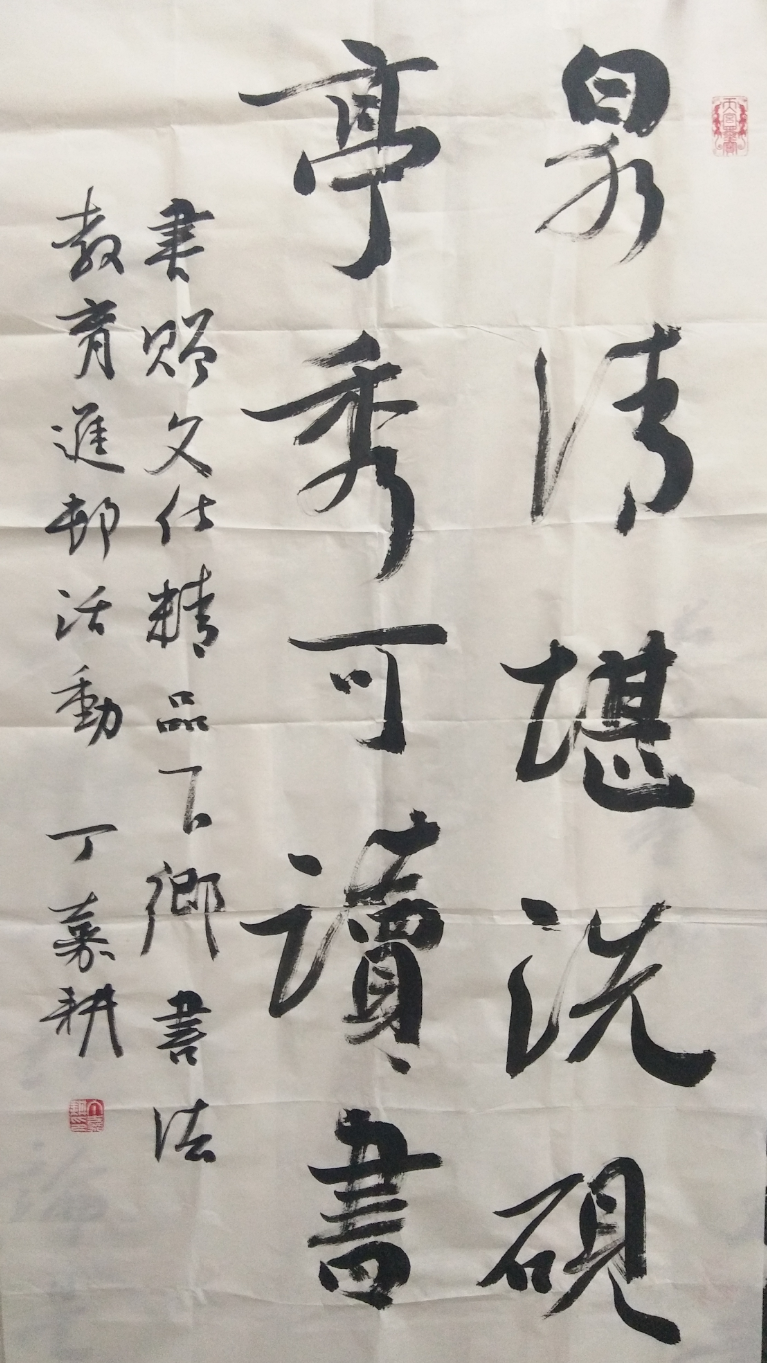 泉清堪洗硯
亭秀可讀書
書贈文化精品下鄉書法
教育進邨活動 丁嘉耕